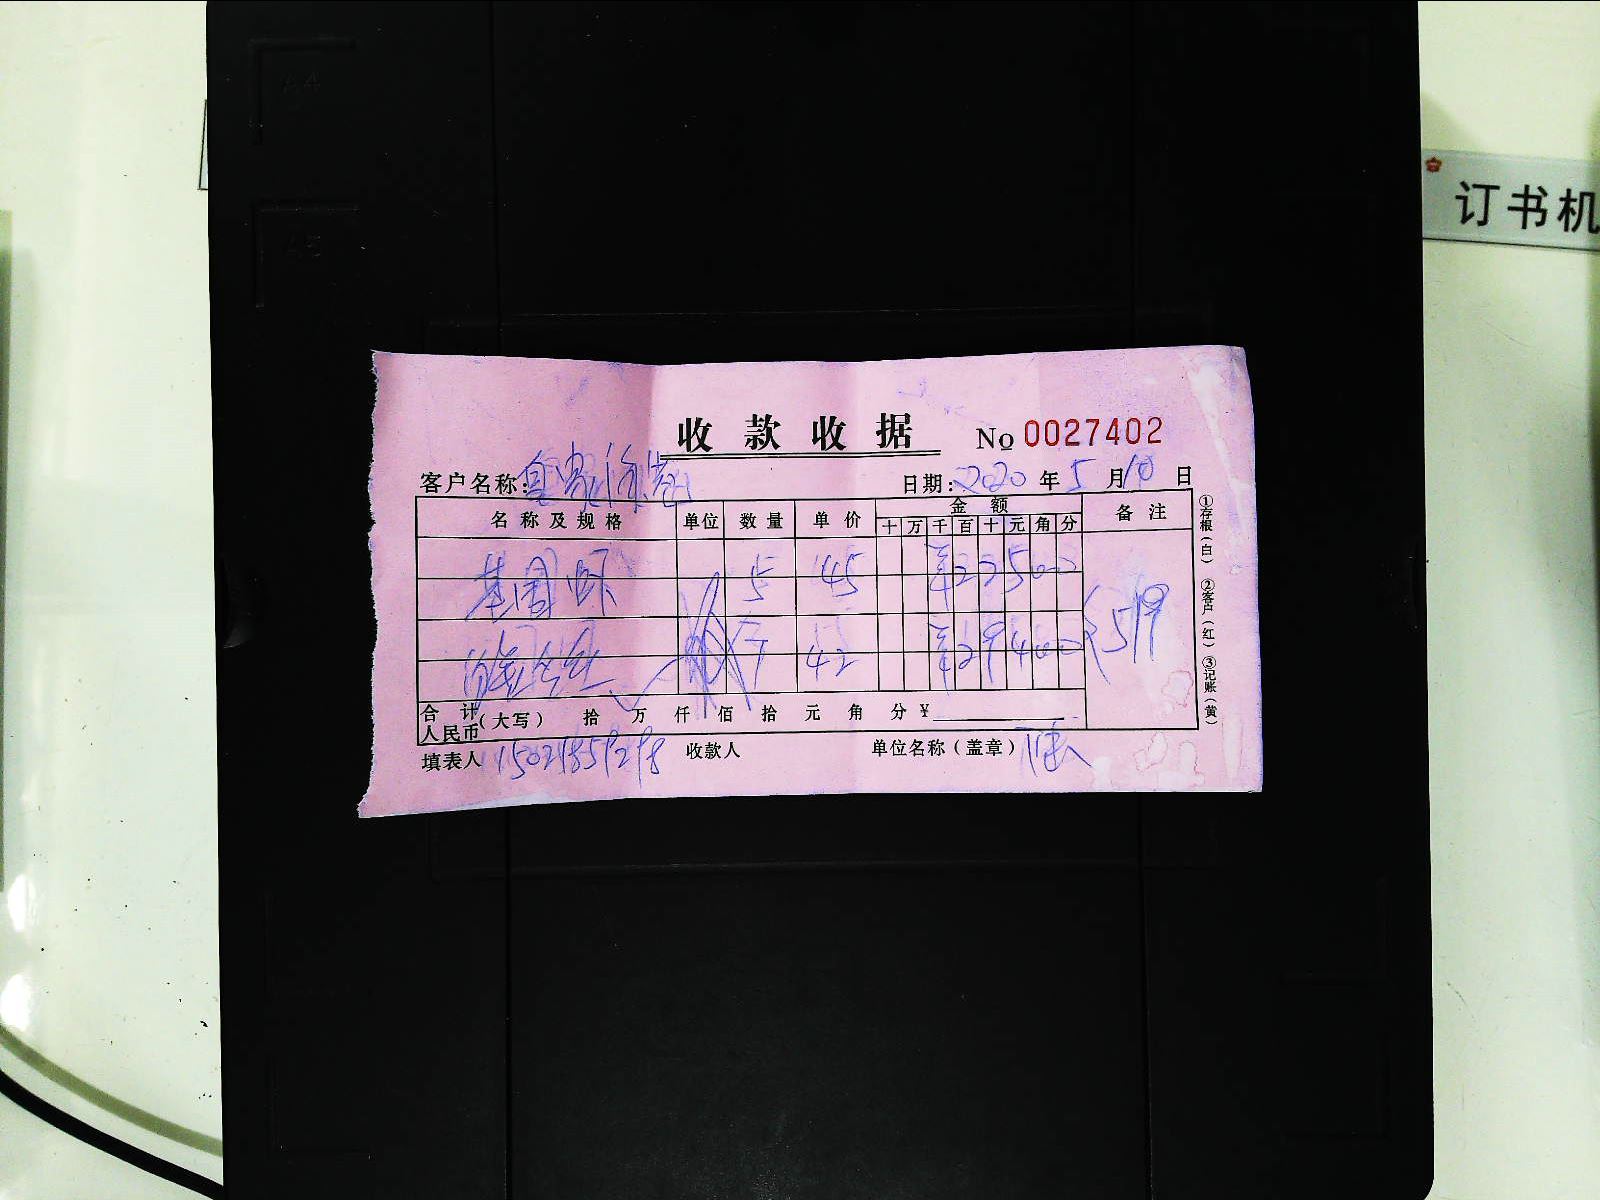 订书机
收款收据 № 0027402
客户名称: 日期: 2020 年 5 月 10 日
名称及规格 单位 数量 单价 金额 备注
十 万 千 百 十 元 角 分
基围虾 5 45 ¥ 2 2 5 0 0
7 42 ¥ 2 9 4 0 0
519
合计人民币(大写) 拾 万 仟 佰 拾 元 角 分 ¥
填表人 15021859298 收款人 单位名称(盖章)
①存根(白) ②客户(红) ③记账(黄)